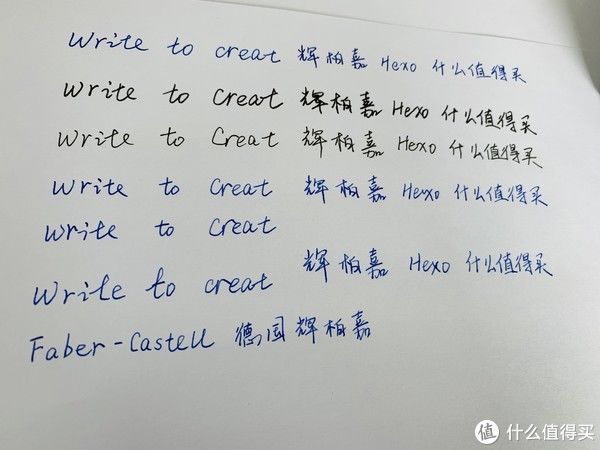 Write to creat 辉柏嘉 Hexo 什么值得买
Write to Creat 辉柏嘉 Hexo 什么值得买
Write to Creat 辉柏嘉 Hexo 什么值得买
Write to Creat 辉柏嘉 Hexo 什么值得买
Write to Creat
Write to creat 辉柏嘉 Hexo 什么值得买
Faber-Castell 德国辉柏嘉
值 什么值得买